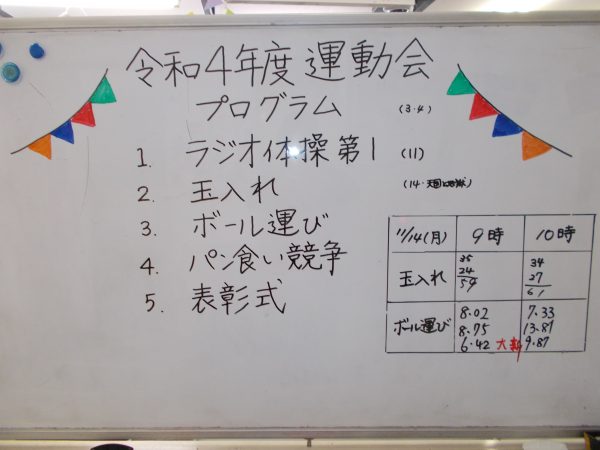 令和4年度 運動会
プログラム (3.4)
1. ラジオ体操第1 (11)
2. 玉入れ (14.天国と地獄)
3. ボール運び
4. パン食い競争
5. 表彰式
11/14(月) 9時 10時
玉入れ
24 27
59 61
34
ボール運び
8.02 7.33
8.75 13.87
6.42 9.87